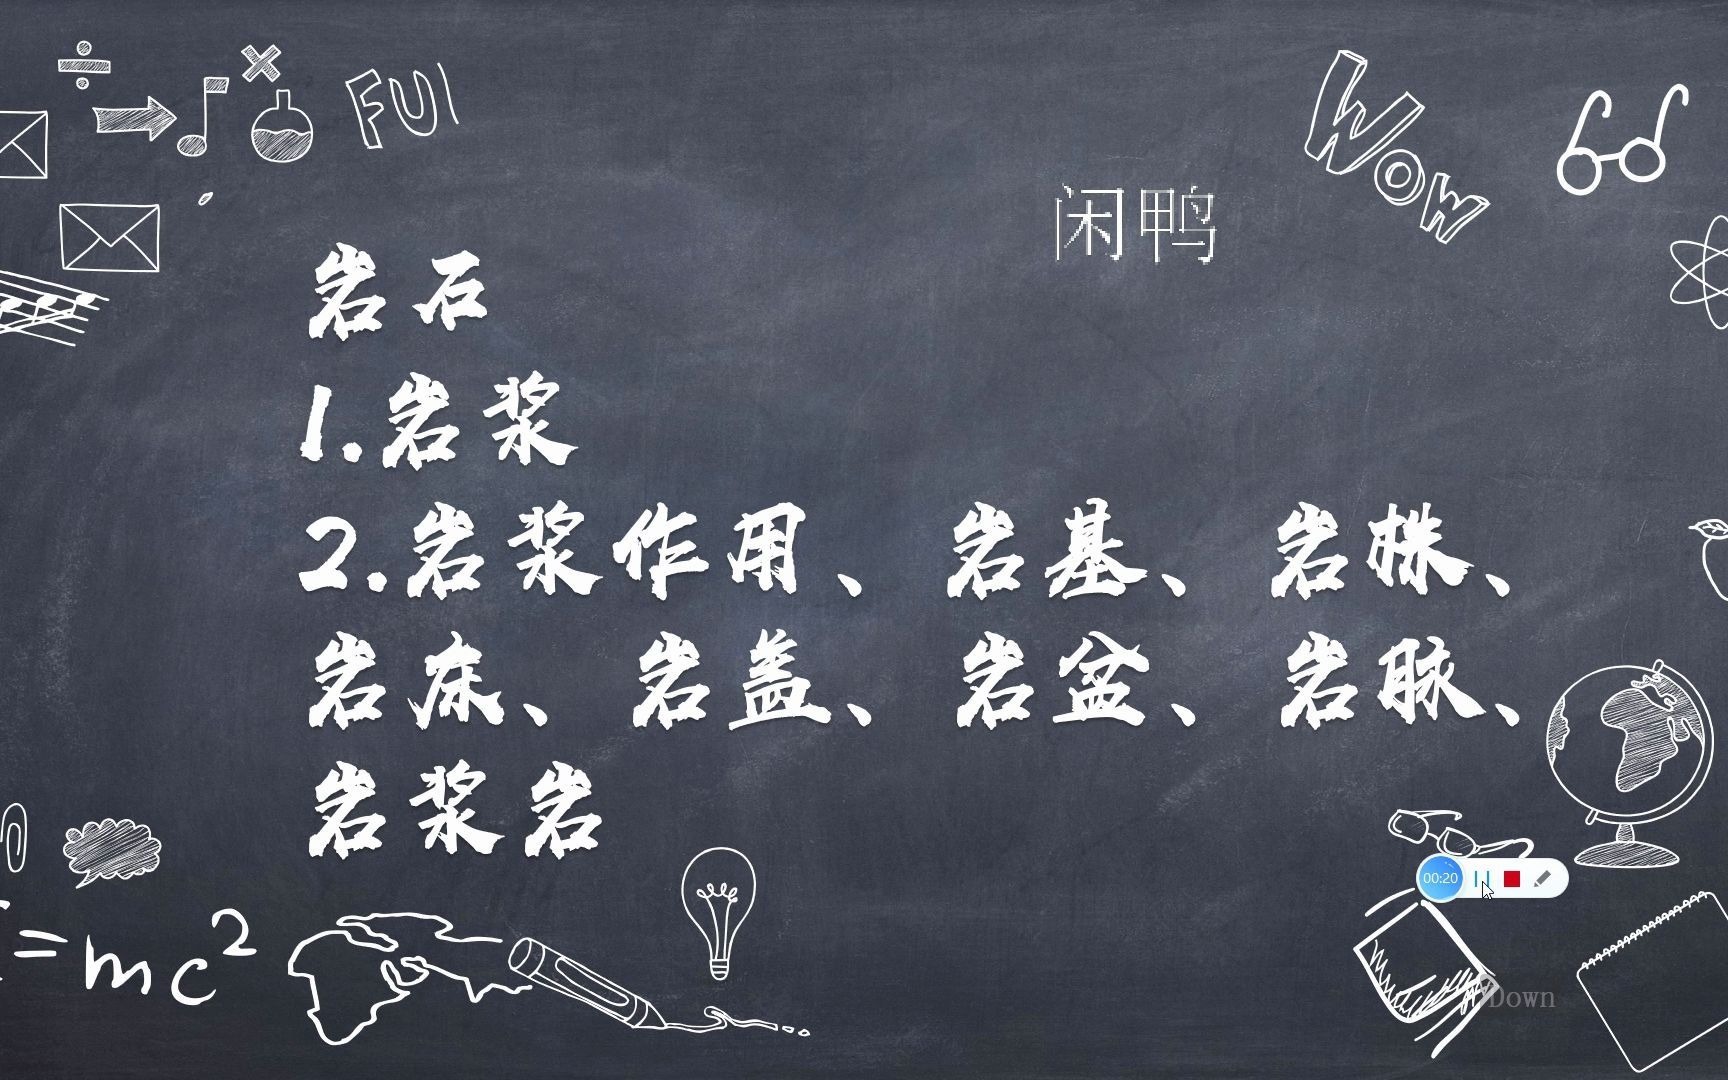 FUN
WOW
闲鸭
岩石
1.岩浆
2.岩浆作用、岩基、岩株、
岩床、岩盖、岩盆、岩脉、
岩浆岩
00:20
=mc²
Down